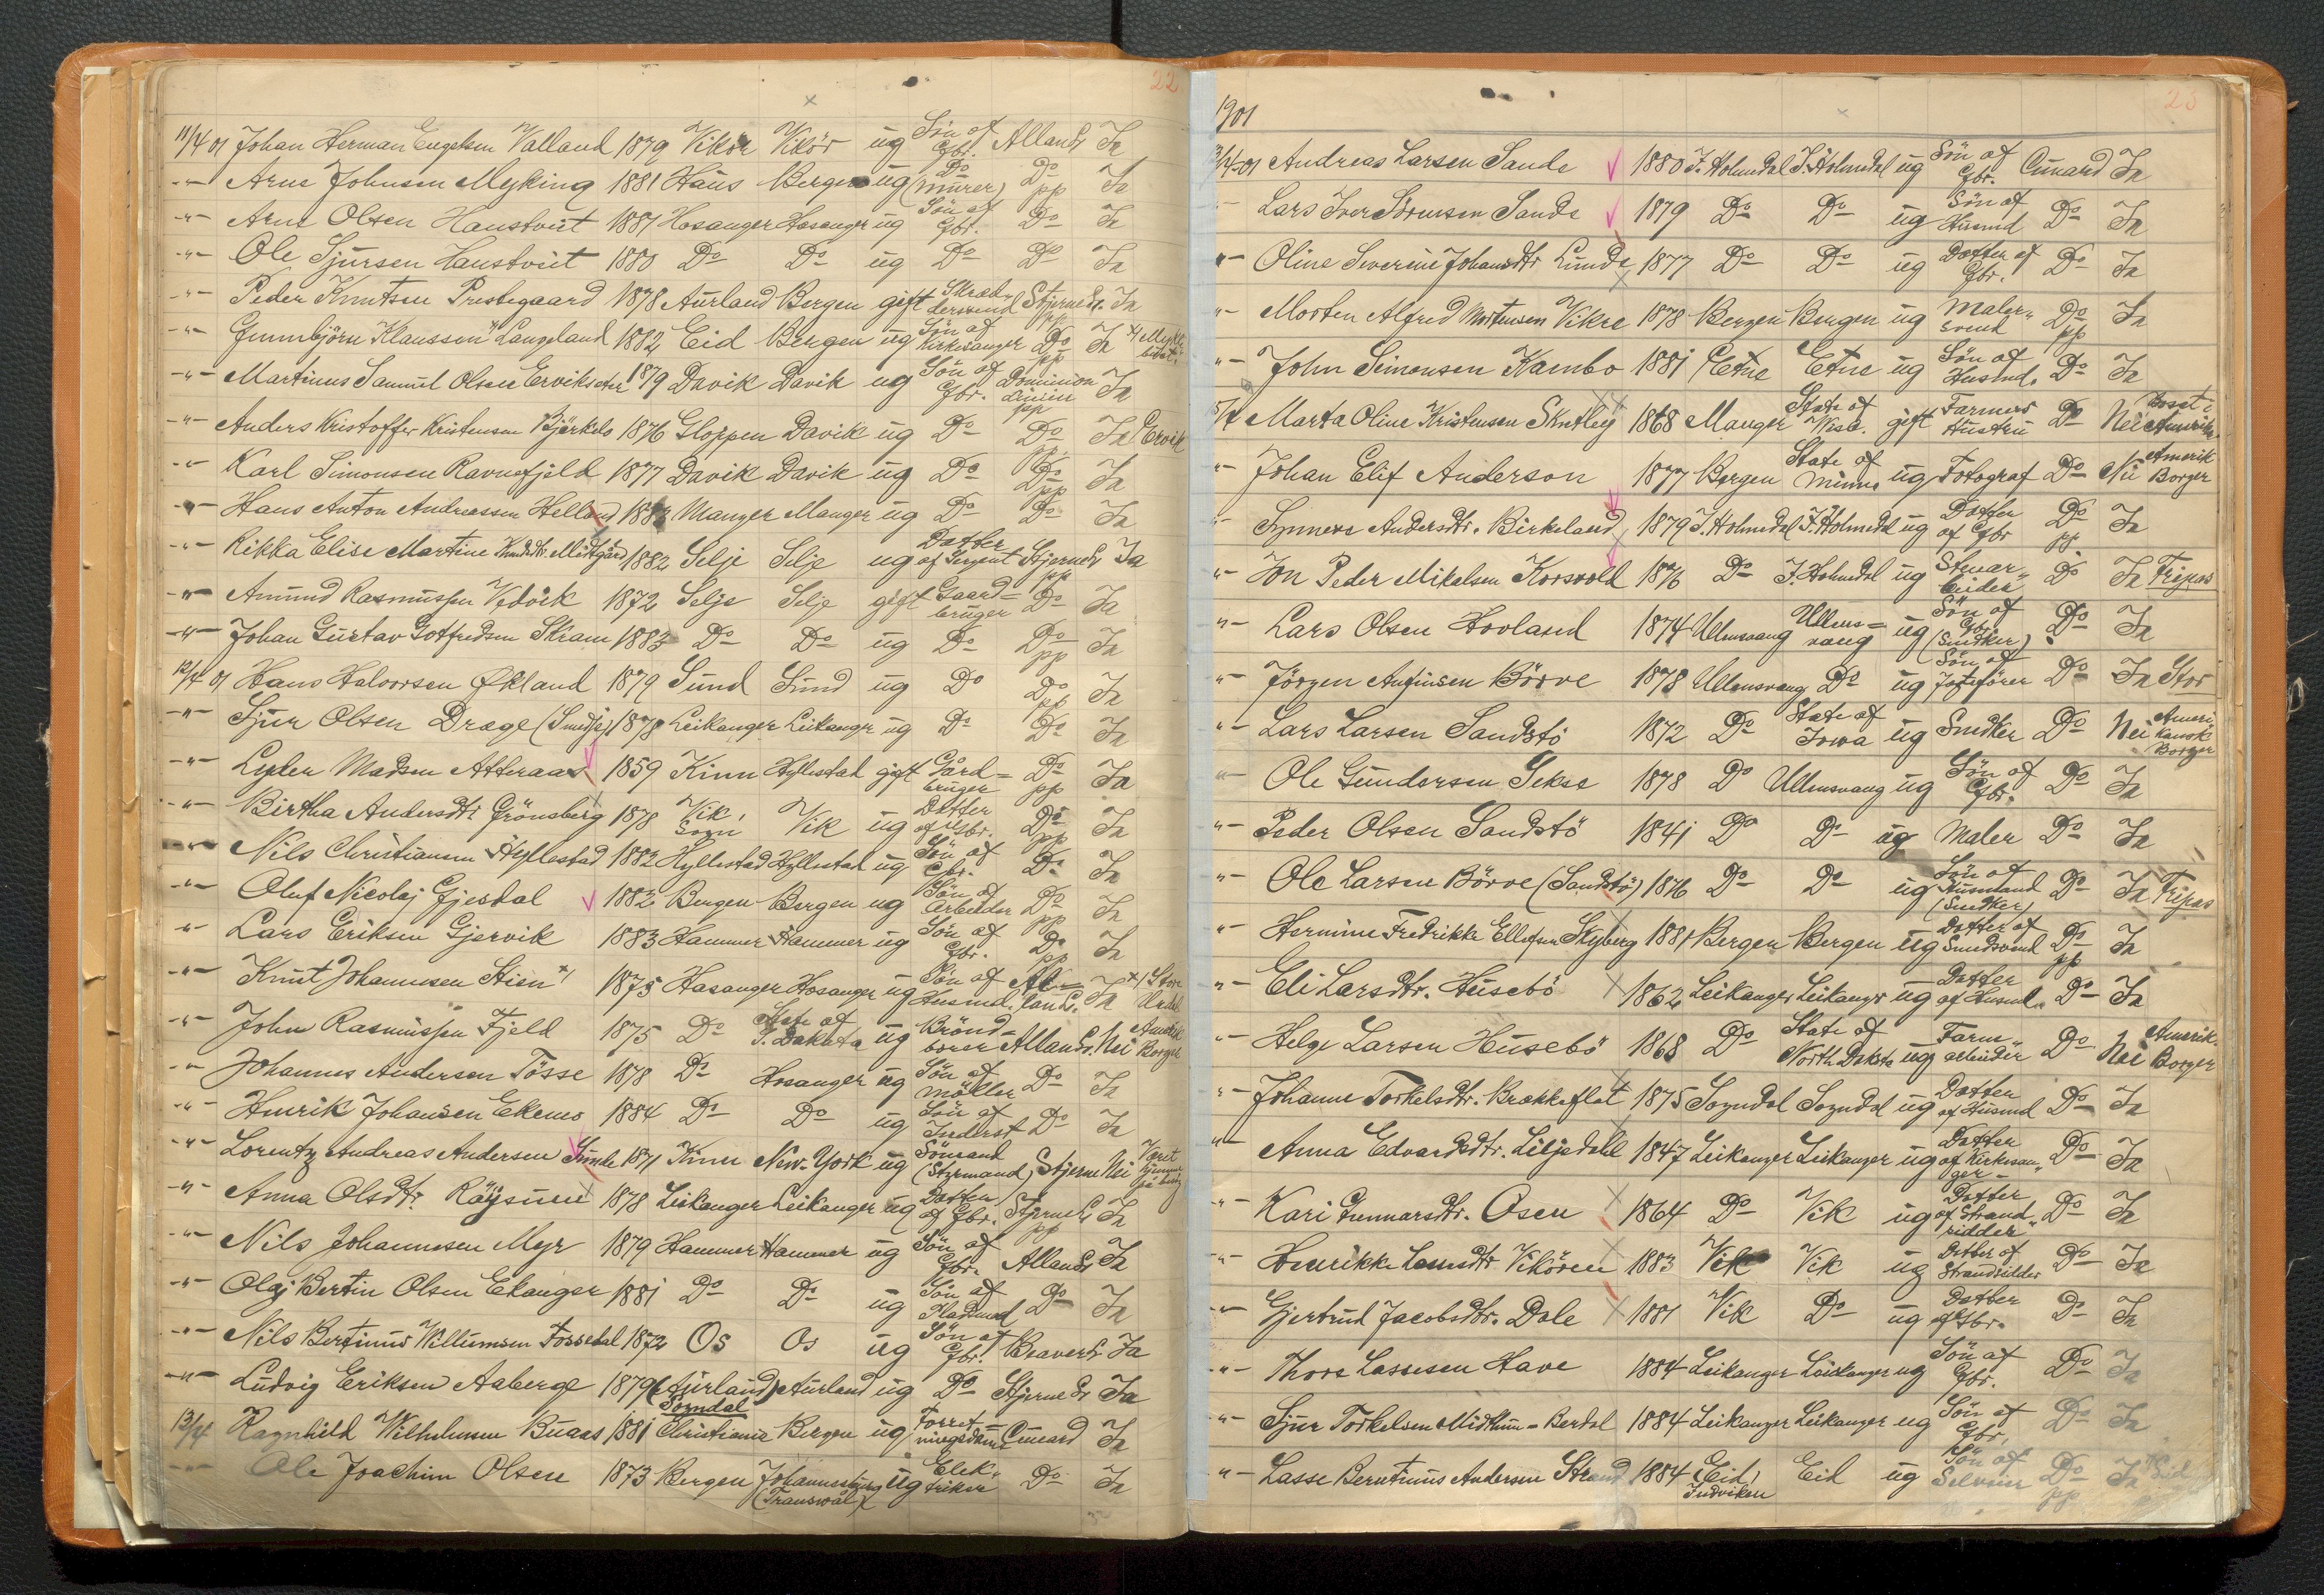 22
11/4 01 Johan Herman Engelsen Valland 1879 Vikör Vikör ug Sön af Gbr. Allandr Ja
-"- Arne Johnsen Myking 1881 Haus Bergen ug Do (Murer) Do pp Ja
-"- Arne Olsen Haustveit 1881 Hosanger Hosanger ug Sön af Gbr. Do Ja
-"- Ole Sjursen Haustveit 1880 Do Do ug Do Do Ja
-"- Peder Knutsen Prestegaard 1878 Aurland Bergen gift Skræddersvend Stjerne Lr. pp Ja
-"- Gunnbjörn Klaussen Langeland 1882 Eid Bergen ug Sön af Kirkesanger Do pp Ja
-"- Martinus Samuel Olsen Erviksæter 1879 Davik Davik ug Sön af Gbr. Dominion Linien pp Ja
-"- Anders Kristoffer Kristensen Bjerkelo 1876 Gloppen Davik ug Do Do pp. Ja Ervik
-"- Karl Simonsen Ravnefjeld 1877 Davik Davik ug Do Do pp Ja
-"- Hans Anton Andreassen Helland 1882 Manger Manger ug Do Do Ja
-"- Rikka Elise Martine Knudsdtr. Midtgård 1882 Selje Selje ug Datter af Sergent Stjerne Lr pp Ja
-"- Amund Rasmussen Vedvik 1872 Selje Selje gift Gaard=bruger Do Ja
-"- Johan Gustav Gotfredsen Skram 1883 Do Do ug Do Do pp Ja
12/4 01 Hans Halvorsen Økland 1879 Sund Sund ug Do Do pp Ja
-"- Sjur Olsen Drægе (Smidje) 1878 Leikanger Leikanger ug Do Do Ja
-"- Lyder Madsen Atteraas 1859 Kinn Hyllestad gift Gård=bruger Do pp Ja
-"- Birtha Andersdtr Grönsberg 1878 Vik, Sogn Vik ug Datter af Gbr. Do pp Ja
-"- Nils Christiansen Hyllestad 1882 Hyllestad Hyllestad ug Sön af Gbr. Do Ja
-"- Oluf Nicolaj Gjesdal 1882 Bergen Bergen ug Sön af Arbeider Do pp Ja
-"- Lars Eriksen Gjervik 1883 Hammer Hammer ug Sön af Gbr. Do pp Ja
-"- Knut Johannesen Stien x) 1875 Hosanger Hosanger ug Sön af Husmd. Al=lan L. Ja
-"- John Rasmussen Fjeld 1875 Do State of S. Dakota ug Brönd=borer Allan Lr. Nei Amerik Borger
-"- Johannes Andersen Tösse 1878 Do Hosanger ug Sön af Möller Do Ja
-"- Henrik Johansen Ekenes 1884 Do Do ug Sön af Inderst Do Ja
-"- Lorentz Andreas Andersen 1871 Kinn New-York ug Sömand (Styrmand) Stjerne Nei
-"- Anna Olsdtr. Röysum 1878 Leikanger Leikanger ug Datter af Gbr. Stjerne Lr pp Ja
-"- Nils Johannesen Myr 1879 Hammer Hammer ug Sön af Gbr. Allan Lr Ja
-"- Olaj Bertin Olsen Ekanger 1881 Do Do ug Sön af Pladsmd Do Ja
-"- Nils Bertinius Willumsen Fossdal 1872 Os Os ug Sön af Gbr. Beaver Lr Ja
-"- Ludvig Eriksen Aaberge 1879 (Aurland) Sogndal Aurland ug Do Stjerne Lr Ja
13/4 Ragnhild Wilhelmsen Buaas 1881 Christiania Bergen ug Forret=ningsdame Cunard Ja
-"- Ole Joachim Olsen 1873 Bergen Johannesburg (Transvål) ug Elek"triker Do Ja
23
1901
Andreas Larsen Sande 1880 I. Holmedal I. Holmedal ug Sön af Gbr. Cunard Ja
-"- Lars Iver Sörensen Sande 1879 Do Do ug Sön af Husmd Do Ja
-"- Oline Severine Johansdtr Lunde 1877 Do Do ug Datter af Gbr. Do Ja
-"- Morten Alfred Mortensen Vikre 1878 Bergen Bergen ug Maler"svend Do pp Ja
-"- John Simonsen Kambo 1881 Etne Etne ug Sön af Husmd. Do Ja
Marta Oline Kristensen 1868 Manger State of Wisc. gift Farmers Hustru Do Nei Bosat i Amerika
-"- Johan Elif Anderson 1877 Bergen State of Minne ug Fotograf Do Nei Amerik Borger
-"- Synneva Andersdtr. Birkeland 1879 I. Holmedal I. Holmedal ug Datter af Gbr Do pp Ja
-"- Jon Peder Mikelsen Korsvold 1876 Do I. Holmedal ug Do Ja Fripas
-"- Lars Olsen Hovland 1874 Ullensvang Ullens=vang ug Sön af Gbr (Snedker) Do Ja
-"- Jörgen Anfinsen Börve 1878 Ullensvang Do ug Sön af Do Ja Stor
-"- Lars Larsen Sandstö 1872 Do State of Iowa ug Snedker Do Nei Ameri"kansk Borger
-"- Ole Gundersen Sekse 1878 Do Ullensvang ug Sön af Gbr. Do Ja
-"- Peder Olsen Sandstö 1841 Do Do ug Maler Do Ja
-"- Ole Larsen Börve (Sandstö) 1876 Do Do ug Sön af Husmand (Snedker) Do Ja Fripas
-"- Hermine Fredrikke Ellefsen Skyberg 1881 Bergen Bergen ug Datter af Smedsvend Do pp Ja
-"- Eli Larsdtr. Husebö 1862 Leikanger Leikanger ug Datter af Husmd. Do Ja
-"- Helge Larsen Husebö 1868 Do State of North Dakota ug Farm"arbeider Do Nei Amerik. Borger
-"- Johanne Torkelsdtr. Brækkeflat 1875 Sogndal Sogndal ug Datter af Husmd Do Ja
-"- Anna Edvardsdtr. Liljedahl 1847 Leikanger Leikanger ug Datter af Kirkesan"ger Do Ja
-"- Kari Gunnarsdtr. Osen 1864 Do Vik ug Datter af Strand"sidder Do Ja
-"- Henrikke Larsdtr Vikören 1883 Vik Vik ug Datter af Strandsidder Do Ja
-"- Gjertrud Jacobsdtr. Dale 1881 Vik Do ug Datter af Gbr. Do Ja
-"- Thore Lassesen Have 1884 Leikanger Leikanger ug Sön af Gbr. Do Ja
-"- Sjur Torkelsen Midthun-Berdal 1884 Leikanger Leikanger ug Sön af Gbr. Do Ja
-"- Lasse Berntinus Andersen Strand 1884 Eid, Indviken Eid ug Sön af Selveier Do pp Ja